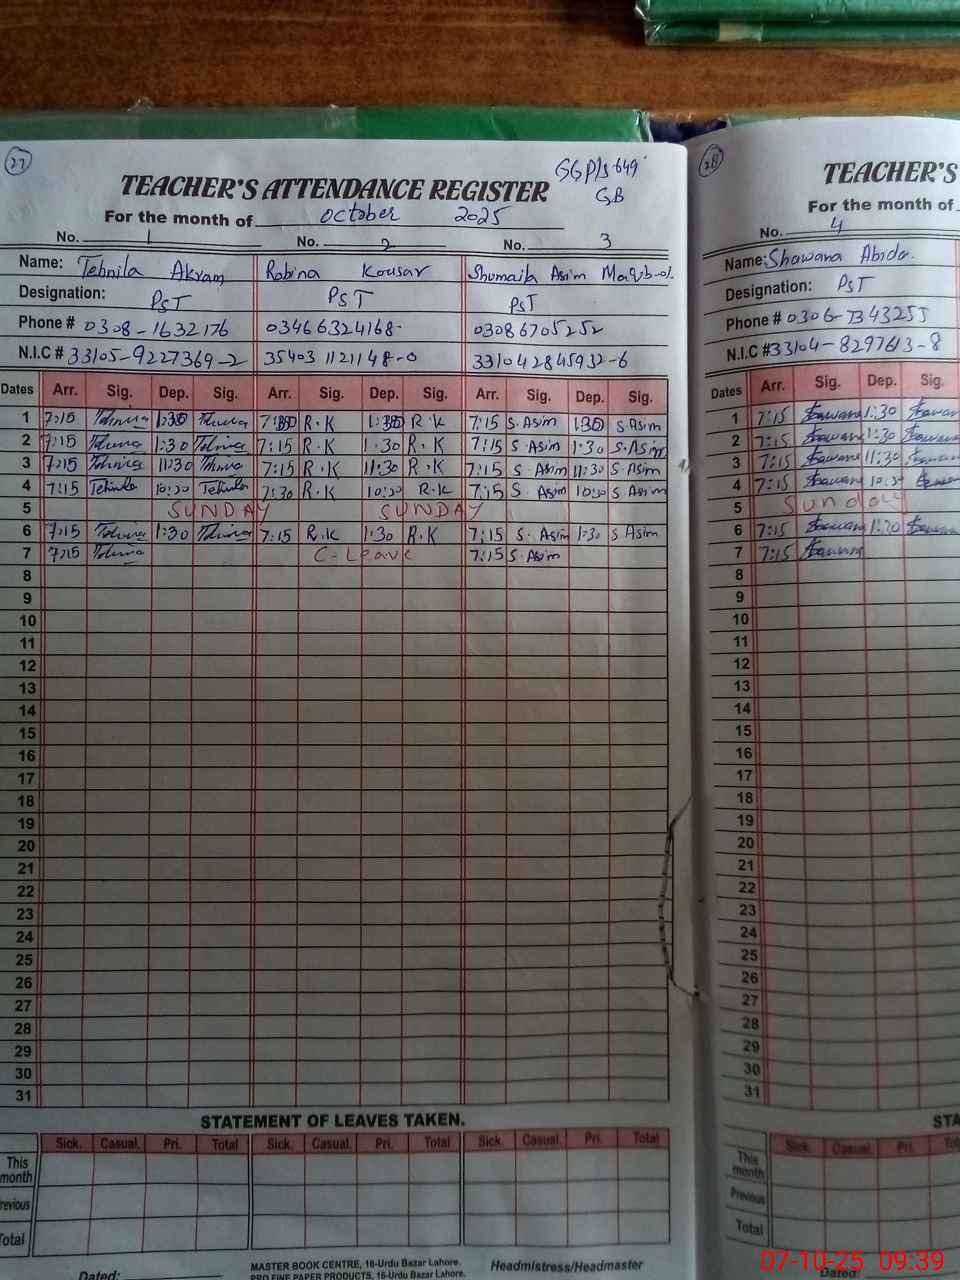 27
TEACHER'S ATTENDANCE REGISTER
GGP/s 649
GB
For the month of October 2025
No. 1 No. 2 No. 3
Name: Tehnila Akram Robina Kousar Shumaila Asim
Designation: PST PST PST
Phone # 0308-1632176 03466324168- 03086705252
N.I.C # 33105-9227369-2 35403 1121148-0 331042845932-6
Dates Arr. Sig. Dep. Sig. Arr. Sig. Dep. Sig. Arr. Sig. Dep. Sig.
1 7:15 1:30 R.K R.K 7:15 S.Asim 1:30 S.Asim
2 7:15 1:30 7:15 R.K 1:30 R.K 7:15 S.Asim 1:30 S.Asim
3 7:15 11:30 7:15 R.K 11:30 R.K 7:15 S.Asim 11:30 S.Asim
4 7:15 Tehnila 10:30 Tehnila 7:30 R.K 10:30 R.K 7:15 S.Asim 10:30 S.Asim
5 SUNDAY SUNDAY
6 7:15 1:30 7:15 R.K 1:30 R.K 7:15 S.Asim 1:30 S Asim
7 7:15 C-Leave 7:15 S.Asim
8
9
10
11
12
13
14
15
16
17
18
19
20
21
22
23
24
25
26
27
28
29
30
31
STATEMENT OF LEAVES TAKEN.
Sick. Casual. Pri. Total Sick. Casual. Pri. Total Sick. Casual. Pri. Total
This month
Previous
Total
Dated:
MASTER BOOK CENTRE, 16-Urdu Bazar Lahore.
PRO FINE PAPER PRODUCTS, 16-Urdu Bazar Lahore.
Headmistress/Headmaster
28
TEACHER'S
For the month of
No. 4
Name: Shawana Abida.
Designation: PST
Phone # 0306-7343255
N.I.C #33104-8297613-8
Dates Arr. Sig. Dep. Sig.
1 7:15 Shawana 1:30
2 7:15 Shawana 1:30 Shawana
3 7:15 Shawana 11:30 Shawana
4 7:15 Shawana 10:30
5 Sunday
6 7:15 Shawana 1:30
7 7:15 Shawana
8
9
10
11
12
13
14
15
16
17
18
19
20
21
22
23
24
25
26
27
28
29
30
31
STA
Sick. Casual. Pri.
This month
Previous
Total
Dated:
07-10-25 09:39